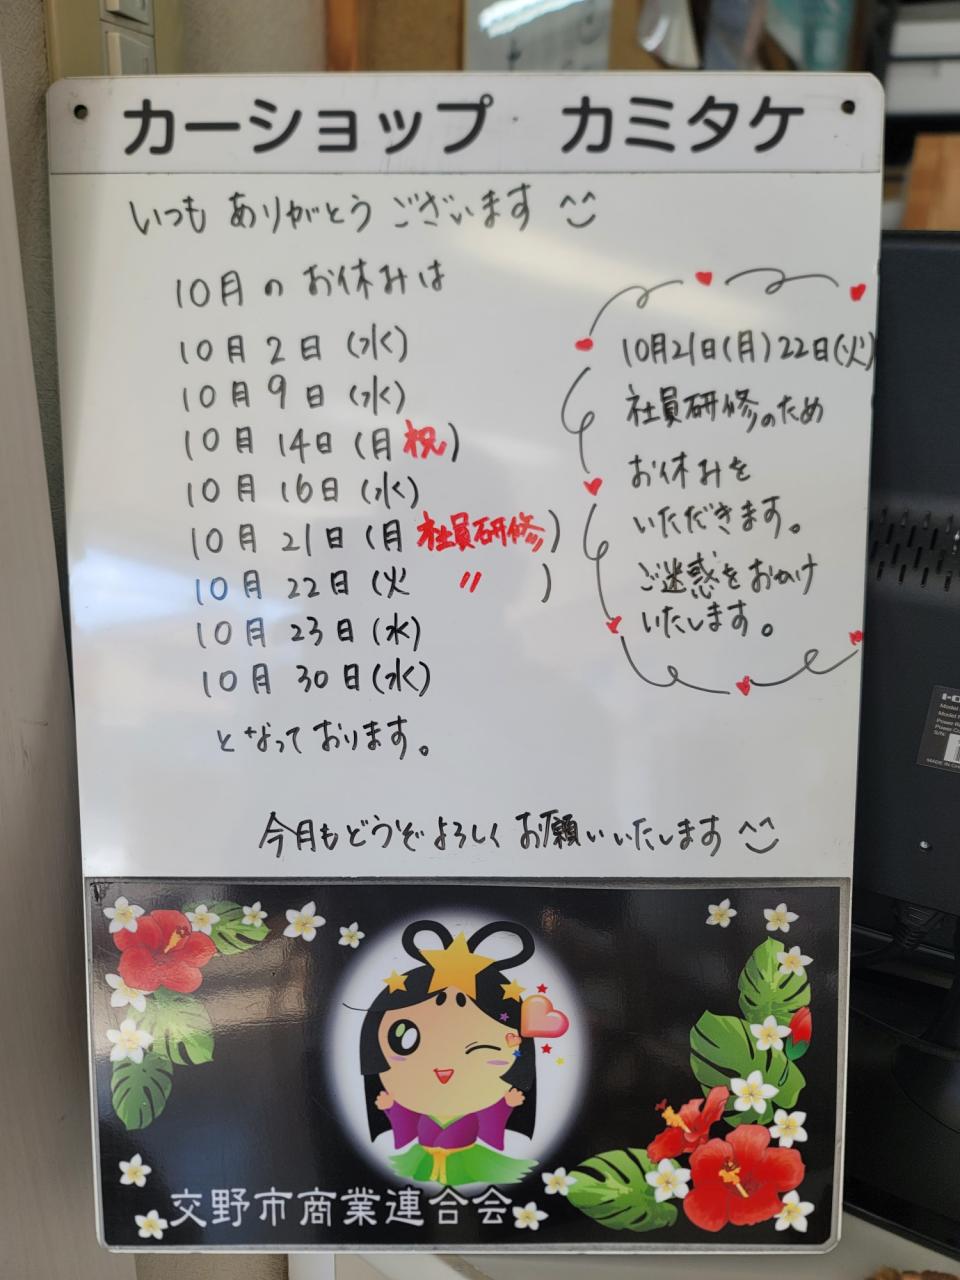 カーショップ カミタケ
いつも ありがとう ございます ^^
10月の お休みは
10月 2日 (水)
10月 9日 (水)
10月 14日 (月 祝)
10月 16日 (水)
10月 21日 (月 社員研修)
10月 22日 (火 〃 )
10月 23日 (水)
10月 30日 (水)
となっております。
10月21日(月)22日(火)
社員研修のため
お休みを
いただきます。
ご迷惑をおかけ
いたします。
今月もどうぞよろしく お願いいたします ^^
交野市商業連合会